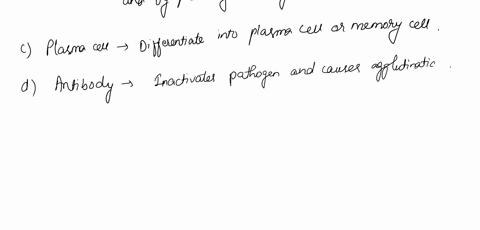 c) Plasma cell → Differentiate into plasma cell or memory cell.
d) Antibody → Inactivates pathogen and causes agglutinatic.